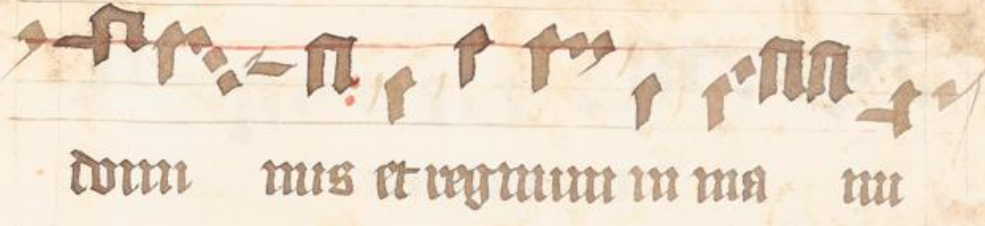 domi nus et regnum in ma nu